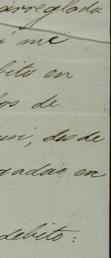 arreglada
i me
bito en
los de
usi, desde
gadas en
debito: